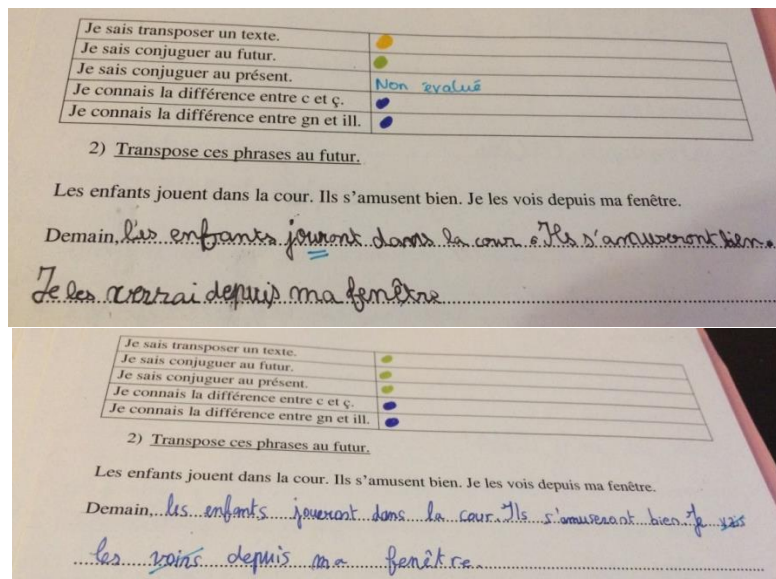 Je sais transposer un texte.
Je sais conjuguer au futur.
Je sais conjuguer au présent. Non évalué
Je connais la différence entre c et ç.
Je connais la différence entre gn et ill.
2) Transpose ces phrases au futur.
Les enfants jouent dans la cour. Ils s'amusent bien. Je les vois depuis ma fenêtre.
Demain, les enfants jouront dans la cour. Ils s'amuseront bien.
Je les verrai depuis ma fenêtre
Je sais transposer un texte.
Je sais conjuguer au futur.
Je sais conjuguer au présent.
Je connais la différence entre c et ç.
Je connais la différence entre gn et ill.
2) Transpose ces phrases au futur.
Les enfants jouent dans la cour. Ils s'amusent bien. Je les vois depuis ma fenêtre.
Demain, les enfants joueront dans la cour. Ils s'amuseront bien. Je
les voirs depuis ma fenêtre.